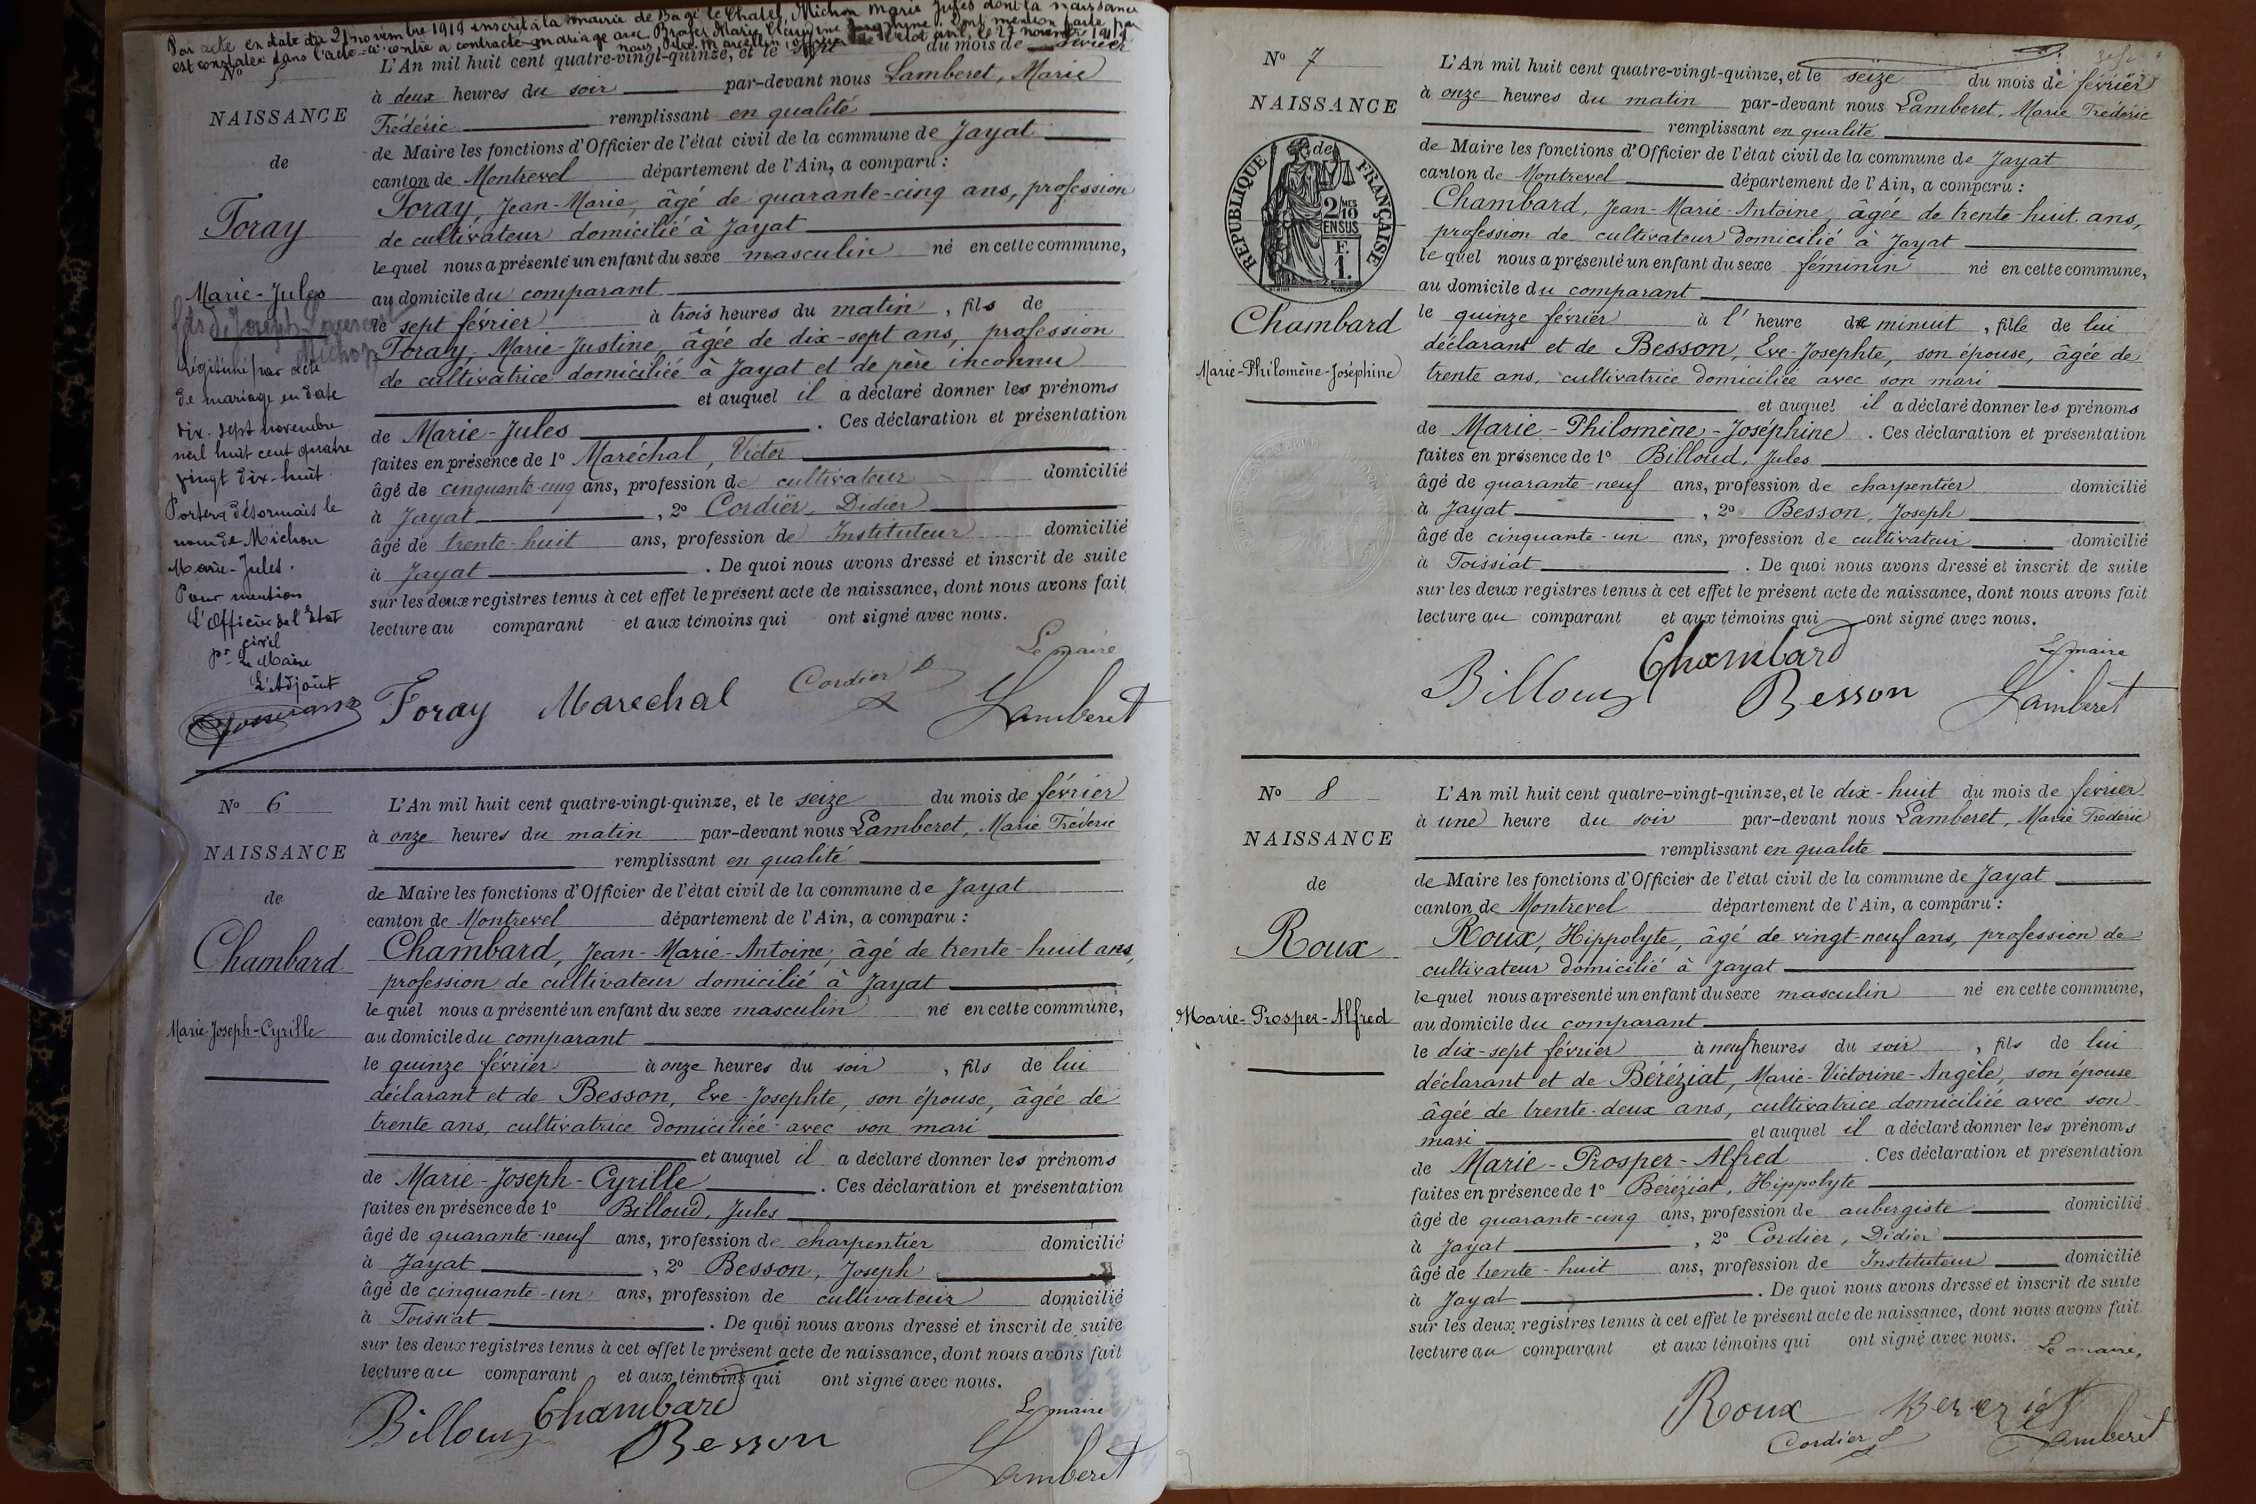 Par acte en date du 21 novembre 1919 inscrit à la mairie de Bagé le Chatel, Michon Marie Jules dont la naissance
est constatée dans l'acte ci-contre a contracté mariage avec Broyer Marie Claudine Dont mention faite par
nous, officier de l'état civil, le 27 novembre 1919
No 5
NAISSANCE
de
Foray
Marie-Jules
fils de Joseph Laurent
Michon
Légitimé par acte
de mariage en date
dix-sept novembre
mil huit cent quatre
vingt dix-huit.
Portera désormais le
nom de Michon
Marie-Jules.
Pour mention
L'Officier de l'Etat
civil
pr le Maire
L'Adjoint
L'An mil huit cent quatre-vingt-quinze, et le sept du mois de février
à deux heures du soir par-devant nous Lamberet, Marie
Frédéric remplissant en qualité
de Maire les fonctions d'Officier de l'état civil de la commune de Jayat
canton de Montrevel département de l'Ain, a comparu :
Foray, Jean-Marie, âgé de quarante-cinq ans, profession
de cultivateur domicilié à Jayat
lequel nous a présenté un enfant du sexe masculin né en cette commune,
au domicile du comparant
le sept février à trois heures du matin, fils de
Foray, Marie-Justine, âgée de dix-sept ans, profession
de cultivatrice domiciliée à Jayat et de père inconnu
et auquel il a déclaré donner les prénoms
de Marie-Jules. Ces déclaration et présentation
faites en présence de 1o Maréchal, Victor
âgé de cinquante-cinq ans, profession de cultivateur domicilié
à Jayat, 2o Cordier, Didier
âgé de trente-huit ans, profession de Instituteur domicilié
à Jayat. De quoi nous avons dressé et inscrit de suite
sur les deux registres tenus à cet effet le présent acte de naissance, dont nous avons fait
lecture au comparant et aux témoins qui ont signé avec nous.
Le maire
Foray Marechal Cordier D Lamberet
No 6
NAISSANCE
de
Chambard
Marie-Joseph-Cyrille
L'An mil huit cent quatre-vingt-quinze, et le seize du mois de février
à onze heures du matin par-devant nous Lamberet, Marie Frédéric
remplissant en qualité
de Maire les fonctions d'Officier de l'état civil de la commune de Jayat
canton de Montrevel département de l'Ain, a comparu :
Chambard, Jean-Marie-Antoine, âgé de trente-huit ans,
profession de cultivateur domicilié à Jayat
lequel nous a présenté un enfant du sexe masculin né en cette commune,
au domicile du comparant
le quinze février à onze heures du soir, fils de lui
déclarant et de Besson, Eve-Josephte, son épouse, âgée de
trente ans, cultivatrice domiciliée avec son mari
et auquel il a déclaré donner les prénoms
de Marie-Joseph-Cyrille. Ces déclaration et présentation
faites en présence de 1o Billoud, Jules
âgé de quarante-neuf ans, profession de charpentier domicilié
à Jayat, 2o Besson, Joseph
âgé de cinquante-un ans, profession de cultivateur domicilié
à Foissiat. De quoi nous avons dressé et inscrit de suite
sur les deux registres tenus à cet effet le présent acte de naissance, dont nous avons fait
lecture au comparant et aux témoins qui ont signé avec nous.
Le maire
Billoud Chambard Besson Lamberet
No 7
NAISSANCE
de
RÉPUBLIQUE FRANÇAISE
2/10MES
EN SUS
F.
1.
Chambard
Marie-Philomène-Joséphine
L'An mil huit cent quatre-vingt-quinze, et le seize du mois de février
à onze heures du matin par-devant nous Lamberet, Marie Frédéric
remplissant en qualité
de Maire les fonctions d'Officier de l'état civil de la commune de Jayat
canton de Montrevel département de l'Ain, a comparu :
Chambard, Jean-Marie-Antoine, âgée de trente-huit ans,
profession de cultivateur domicilié à Jayat
lequel nous a présenté un enfant du sexe féminin né en cette commune,
au domicile du comparant
le quinze février à l'heure de minuit, fille de lui
déclarant et de Besson, Eve-Josephte, son épouse, âgée de
trente ans, cultivatrice domiciliée avec son mari
et auquel il a déclaré donner les prénoms
de Marie-Philomène-Joséphine. Ces déclaration et présentation
faites en présence de 1o Billoud, Jules
âgé de quarante-neuf ans, profession de charpentier domicilié
à Jayat, 2o Besson, Joseph
âgé de cinquante-un ans, profession de cultivateur domicilié
à Foissiat. De quoi nous avons dressé et inscrit de suite
sur les deux registres tenus à cet effet le présent acte de naissance, dont nous avons fait
lecture au comparant et aux témoins qui ont signé avec nous.
Le maire
Billoud Chambard Besson Lamberet
No 8
NAISSANCE
de
Roux
Marie-Prosper-Alfred
L'An mil huit cent quatre-vingt-quinze, et le dix-huit du mois de février
à une heure du soir par-devant nous Lamberet, Marie Frédéric
remplissant en qualité
de Maire les fonctions d'Officier de l'état civil de la commune de Jayat
canton de Montrevel département de l'Ain, a comparu :
Roux, Hippolyte, âgé de vingt-neuf ans, profession de
cultivateur domicilié à Jayat
lequel nous a présenté un enfant du sexe masculin né en cette commune,
au domicile du comparant
le dix-sept février à neuf heures du soir, fils de lui
déclarant et de Béréziat, Marie-Victorine-Angèle, son épouse
âgée de trente-deux ans, cultivatrice domiciliée avec son
mari et auquel il a déclaré donner les prénoms
de Marie-Prosper-Alfred. Ces déclaration et présentation
faites en présence de 1o Béréziat, Hippolyte
âgé de quarante-cinq ans, profession de aubergiste domicilié
à Jayat, 2o Cordier, Didier
âgé de trente-huit ans, profession de Instituteur domicilié
à Jayat. De quoi nous avons dressé et inscrit de suite
sur les deux registres tenus à cet effet le présent acte de naissance, dont nous avons fait
lecture au comparant et aux témoins qui ont signé avec nous.
Le maire,
Roux Bereziat
Cordier Lamberet